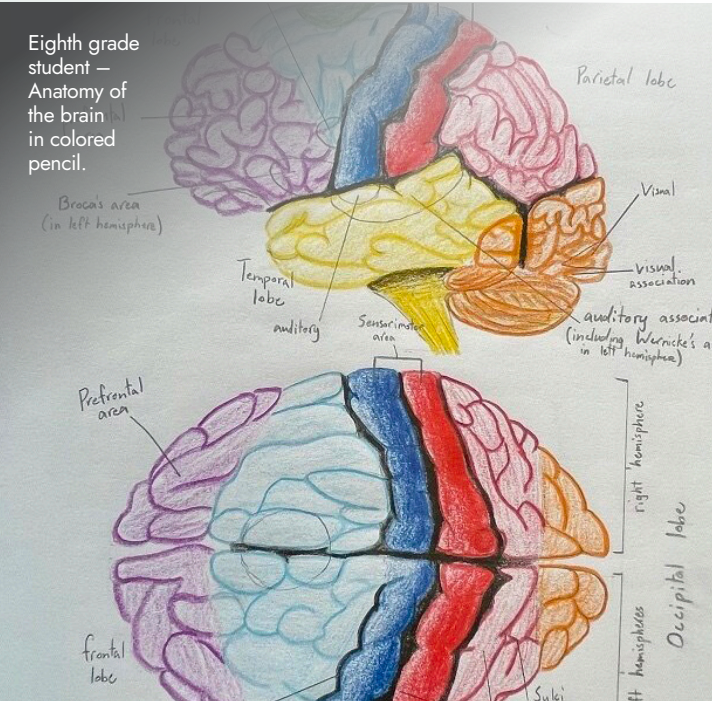 Eighth grade
student –
Anatomy of
the brain
in colored
pencil.
Parietal lobe
Broca's area
(in left hemisphere)
Visual
Visual
association
Temporal
lobe
auditory
Sensorimotor
area
auditory associat
(including Wernicke's a
in left hemisphere)
Prefrontal
area
right hemisphere
Occipital lobe
frontal
lobe
ft hemispheres
Sulci